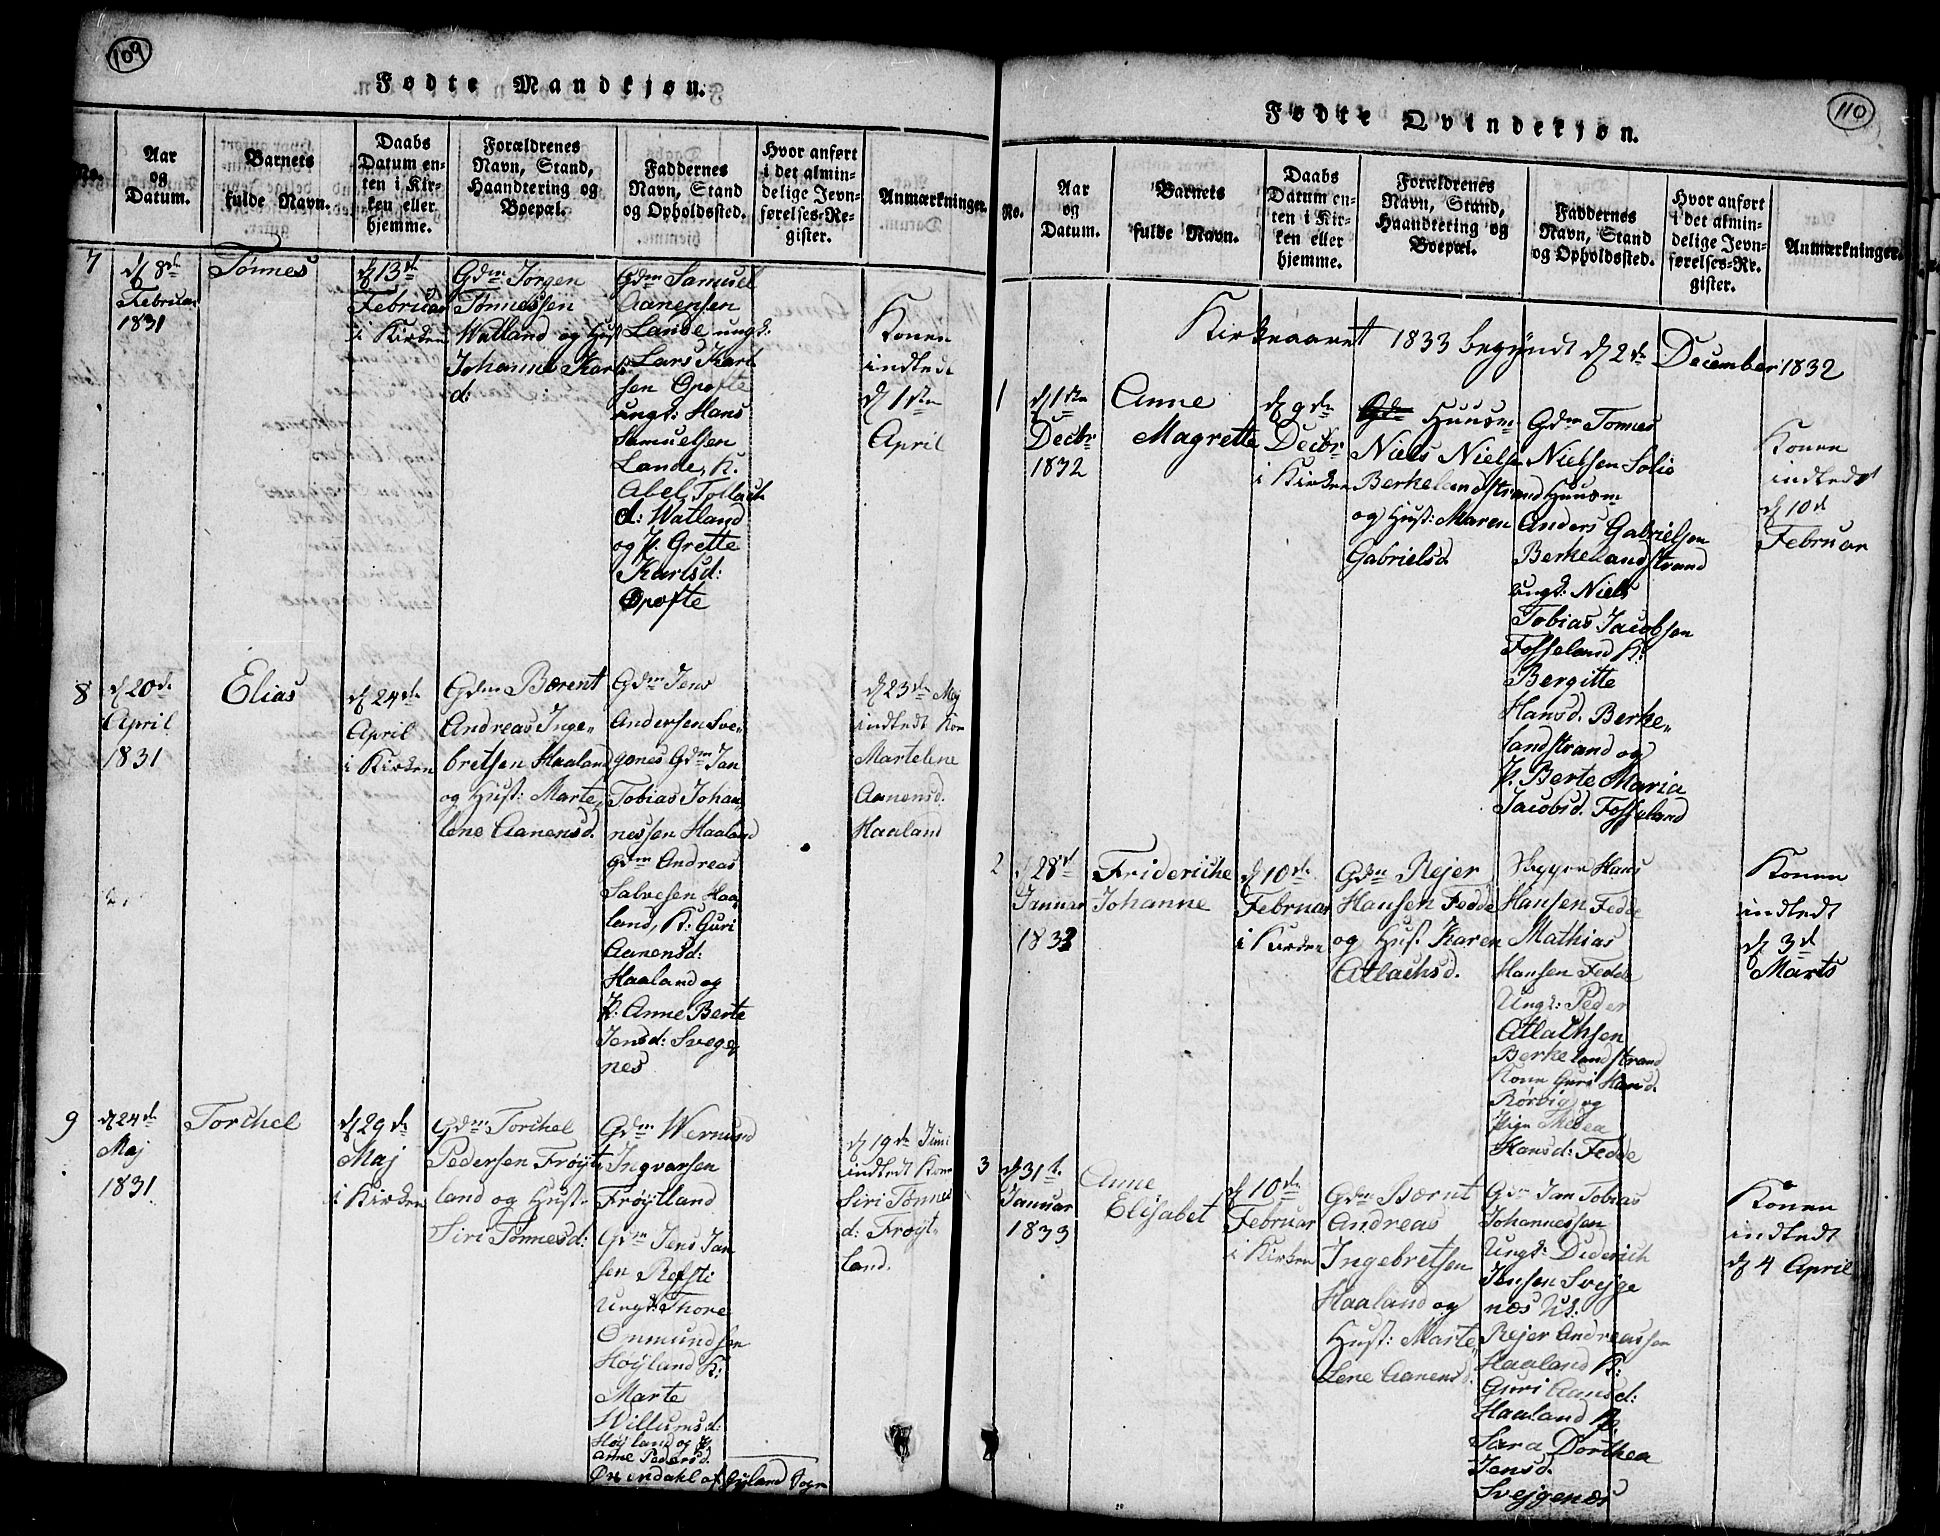 109
Fødte Mandkjøn.
No.
Aar
og
Datum.
Barnets
fulde Navn.
Daabs
Datum en-
ten i Kir-
ken eller
hjemme.
Forældrenes
Navn, Stand,
Haandtering og
Boepæl.
Faddernes
Navn, Stand
og Opholdssted.
Hvor anført
i det almin-
delige Jevn-
førelses-Re-
gister.
Anmærkninger.
7
d 8de
Februar
1831
Tønnes
d 13de
Februar
i Kirken
Gdm Jørgen
Tønnessen
Watland og Hust
Johanne Karls
d:
Gdm Samuel
Aanensen
Lande ungk:
Lars Karl
sen Opofte
ungk: Hans
Samuelsen
Lande, K.
Abel Tollach
d: Watland
og p. Grette
Karlsd:
Opofte
Konen
indledt
d 1ste
April
8
d 20de
April
1831
Elias
d 24de
April
i Kirken
Gdm Bærent
Andreas Inge„
bretsen Haaland
og Hust: Marte„
lene Aanensd.
Gdm Jens
Andersen Sve„
gønes Gdm Jan
Tobias Johan„
nessen Haaland
Gdm Andreas
Salvesen Haa„
land, K: Guri
Aanensd:
Haaland og
p: Anne Berte
Jensd: Svege„
nes
d 23de Maj
indledt Kon
Martelene
Aanensd.
Haaland
9
d 24de
Maj
1831
Torchel
d 29de
Maj
i Kirken
Gdm Torchel
Pedersen Frøyt
land og Hust
Siri Tønnesd:
Gdm Wernund
Ingvarsen
Frøytland
Gdm Jens Jan
sen Refsti
Ungk: Thore
Ommundsen
Høyland K:
Marte
Willumsd:
Høyland og p.
Anne Pedersd.
Øvindahl af Gyland Sogn
d 19de Juni
indledt Kon
Siri Tønnes
d: Frøyt„
land.
110
Fødte Qvindekjøn.
No.
Aar
og
Datum.
Barnets
fulde Navn.
Daabs
Datum en-
ten i Kir-
ken eller
hjemme.
Forældrenes
Navn, Stand,
Haandtering og
Boepæl.
Faddernes
Navn, Stand
og Opholdssted.
Hvor anført
i det almin-
delige Jevn-
førelses-Re-
gister.
Anmærkninger.
Kirkeaaret 1833 begyndt d 2de December 1832
1
d 1ste
Decbr
1832
Anne
Magrette
d 9de
Decbr
i Kirken
Gdm Huusm
Niels Nielsen
Berkelandstrand
og Hust: Maren
Gabrielsd
Gdm Tønnes
Nielsen Solie
Huusm
Anders Gabrielsen
Berkelandstrand
ungk: Niels
Tobias Jacobsen
Fosseland K:
Bergitte
Hansd. Berke„
landstrand og
p. Berte Maria
Jacobsd. Fosseland
Konen
indledt
d 10d
Februar
2
d 28de
Januar
1833
Friderikke
Johanne
d 10de
Februar
i Kirken
Gdm Rejer
Hansen Fedde
og Hust Karen
Atlachsd.
Skipper Hans
Hansen Fedde
Mathias
Hansen Fedde
Ungk: Peder
Atlachsen
Berkelandstrand
Kone Guri Hansd.
Rørvig og
Pige Thedea
Hansd: Fedde
Konen
indledt
d 3d
Marts
3
d 31te
Januar
1833
Anne
Elisabet
d 10de
Februar
i Kirken
Gdm Bærnt
Andreas
Ingebretsen
Haaland og
Hust: Marte„
lene Aanensd.
Gdm Jan Tobias
Johannessen
Ungk: Diderich
Jensen Svejge
næs Uk.
Rejer Andreassen
Haaland K:
Guri Aansd:
Haaland p.
Sara Dorthea
Jensd.
Svejgenæs
Konen
indledt
d 4 April